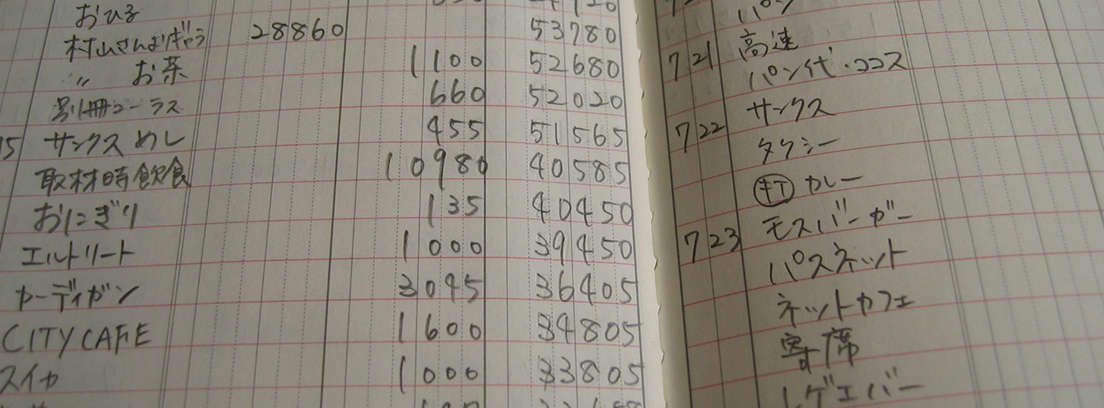 おひる
村山さんよりぎゃら 28860 53780
〃 お茶 1100 52680
別冊コーラス 660 52020
15 サンクス めし 455 51565
取材時飲食 10980 40585
おにぎり 135 40450
エルトリート 1000 39450
カーディガン 3045 36405
CITY CAFE 1600 34805
スイカ 1000 33805
パン
7 21 高速
パン代・ココス
7 22 サンクス
タクシー
カレー
7 23 モスバーガー
パスネット
ネットカフェ
寄席
レゲエバー